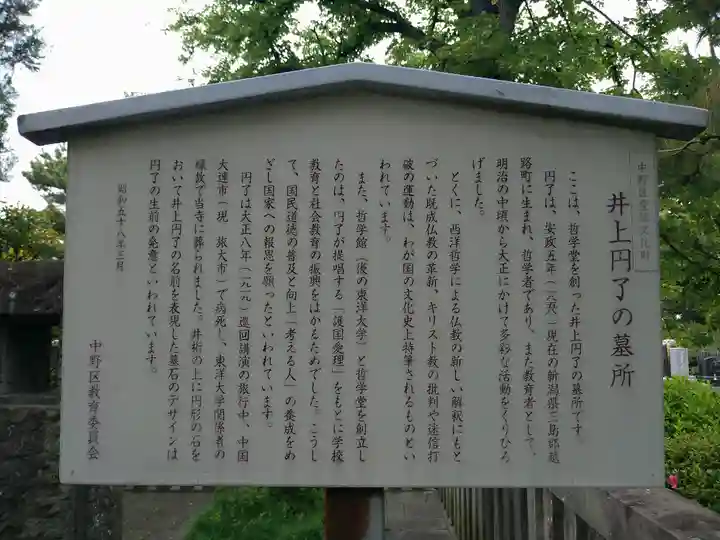 中野区登録文化財
井上円了の墓所
ここは、哲学堂を創った井上円了の墓所です
円了は、安政五年(一八五八)現在の新潟県三島郡越
路町に生まれ、哲学者であり、また教育者として、
明治の中頃から大正にかけて多彩な活動をくりひろ
げました。
とくに、西洋哲学による仏教の新しい解釈にもと
づいた既成仏教の革新、キリスト教の批判や迷信打
破の運動は、わが国の文化史上特筆されるものとい
われています。
また、哲学館(後の東洋大学)と哲学堂を創立し
たのは、円了が提唱する「護国愛理」をもとに学校
教育と社会教育の振興をはかるためでした。こうし
て、国民道徳の普及と向上「考える人」の養成をめ
ざし国家への報恩を願ったといわれています。
円了は大正八年(一九一九)巡回講演の旅行中、中国
大連市(現 旅大市)で病死し、東洋大学関係者の
様敬で当寺に葬られました。井桁の上に円形の石を
おいて井上円了の名前を表現した墓石のデザインは
円了の生前の発意といわれています。
昭和五十八年三月
中野区教育委員会